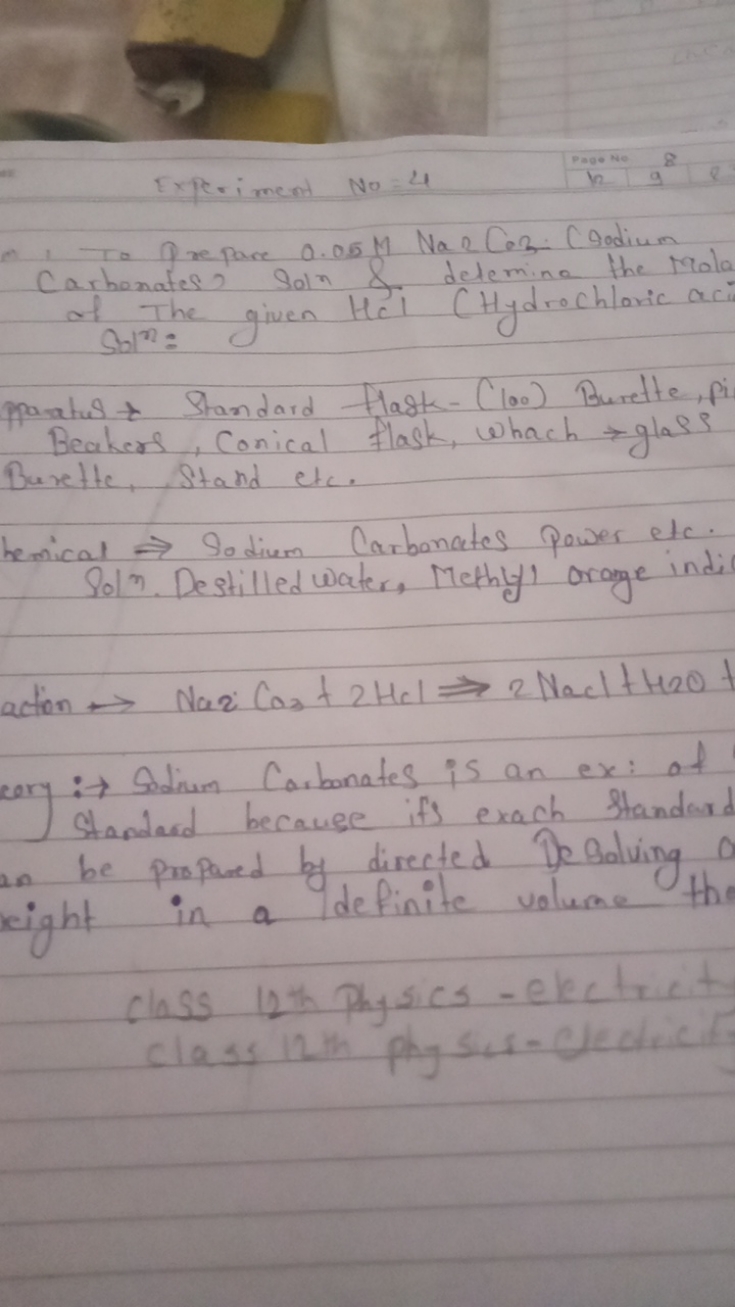 Page No 8
Experiment No = 4
To Prepare 0.05M Na2Co3. (Sodium
Carbonates) Soln & delemina the Mola
of The given Hcl (Hydrochloric aci
Soln =
pparatus → Standard flask - (100) Burette, pi
Beakers, Conical flask, whach → glass
Burette, Stand etc.
hemical ⇒ Sodium Carbonates Power etc.
Soln. Destilled water, Methyl orange indi
action → Na2 Co3 + 2Hcl ⇒ 2 Nacl + H2O +
eory :→ Sodium Carbonates is an ex: of
Standard because its exach Standard
an be propared by directed Desolving a
eight in a definite volume the
class 12th Physics - electricit
class 12th physics - electricit